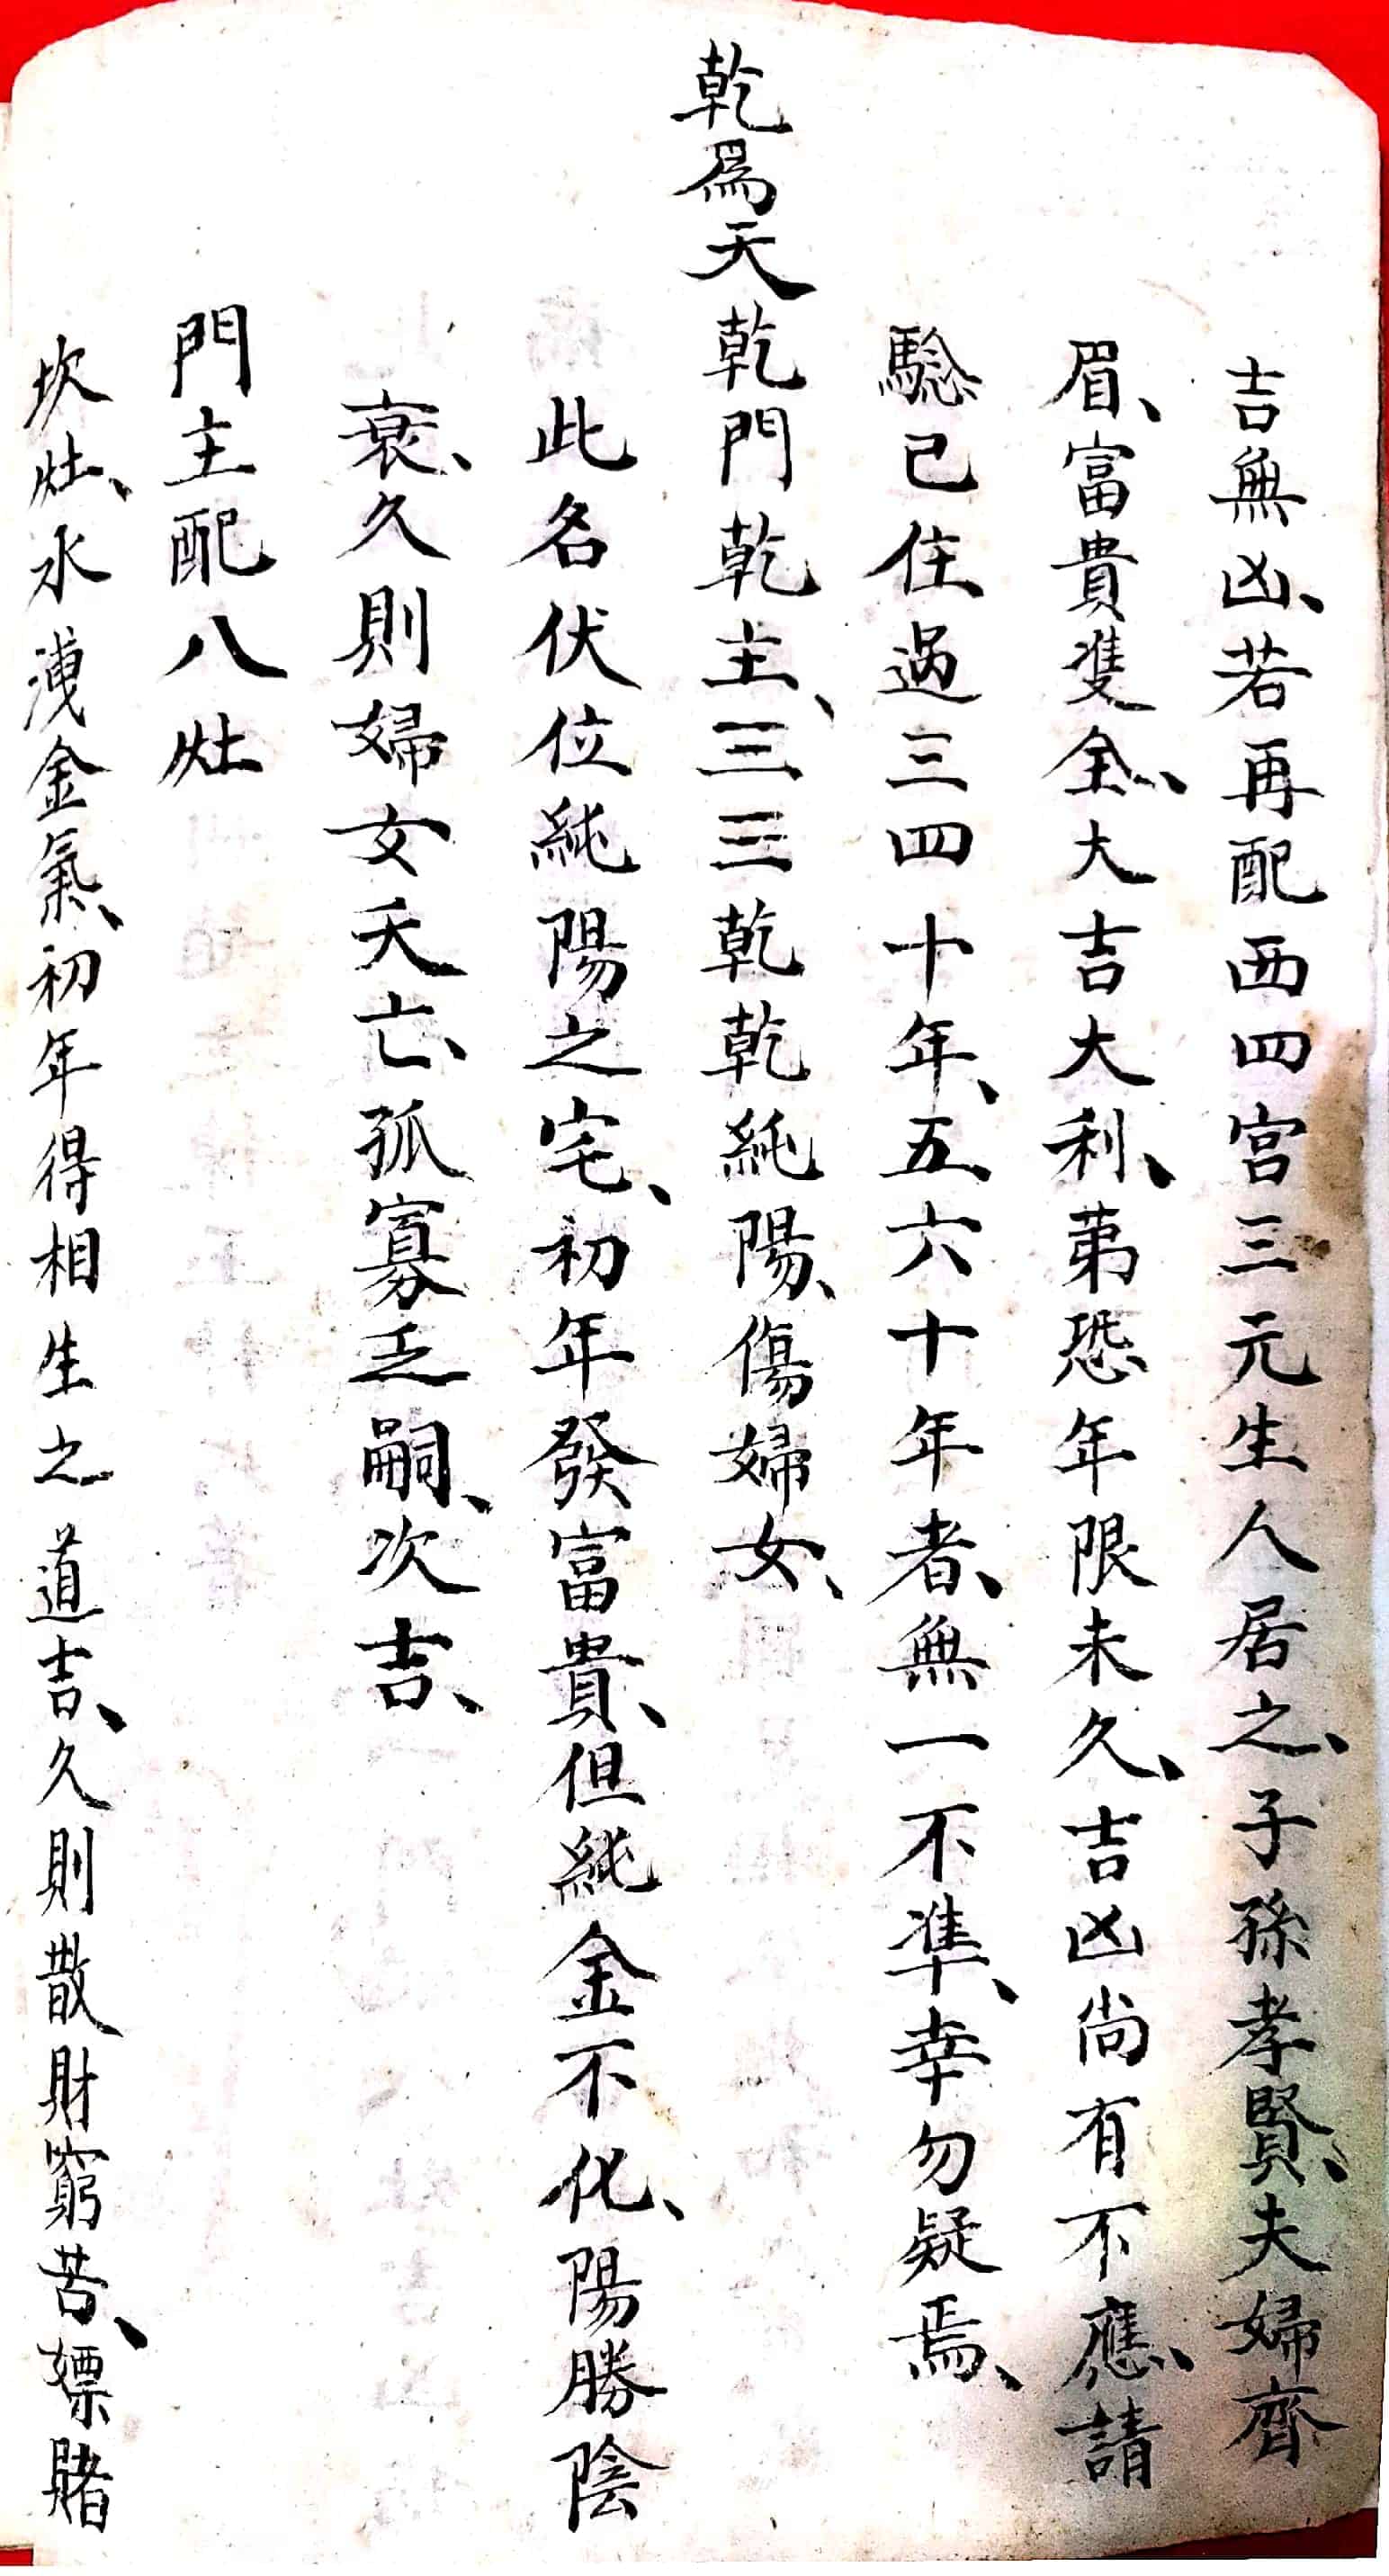 吉無凶、若再配西四宮三元生人居之、子孫孝賢、夫婦齊
眉、富貴雙全、大吉大利、苐恐年限未久、吉凶尚有不應、請
騐已住過三四十年、五六十年者、無一不準、幸勿疑焉、
乾爲天乾門乾主、三三乾乾純陽、傷婦女、
此名伏位純陽之宅、初年發富貴、但純金不化、陽勝陰
衰、久則婦女夭亡、孤寡乏嗣、次吉、
門主配八灶
坎灶、水洩金氣、初年得相生之道吉、久則散財窮苦、嫖賭